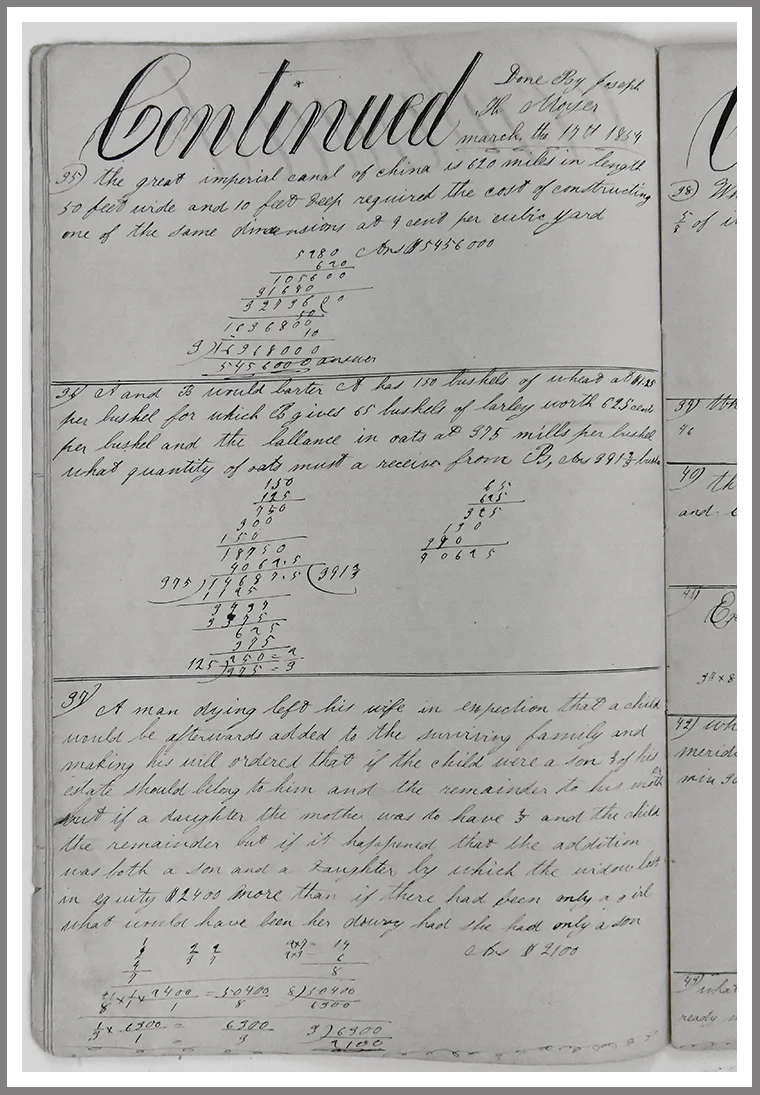 Continued
Done By Joseph
H. Moyer
march the 17th 1854
35) the great imperial canal of china is 620 miles in length
50 feet wide and 10 feet deep required the cost of constructing
one of the same dimensions at 9 cent per cubic yard
5280 Ans $5456000
620
105600
31680
3273600
50
163680000
10
3)16368000
5456000 answer
36) A and B would barter A has 150 bushels of wheat at $1.25
per bushel for which B gives 65 bushels of barley worth 625 cents
per bushel and the ballance in oats at 375 mills per bushel
what quantity of oats must a receive from B, Ans 391 2/3 bushs
150 65
125 625
750 325
300 130
150 390
18750 40625
4062.5
375)14687.5(391 2/3
1125
3437
3375
625
375
125)250=2
375=3
37)
A man dying left his wife in expection that a child
would be afterwards added to the surviving family and
making his will ordered that if the child were a son of his
estate should belong to him and the remainder to his mother
but if a daughter the mother was to have and the child
the remainder but if it happened that the addition
was both a son and a daughter by which the widow lost
in equity $2400 more than if there had been only a girl
what would have been her dowry had she had only a son
Ans $2100
14
6
8
2400 = 50400 8)50400
8 6300
1/3 × 6300 = 6300 3)6300
1 3 2100
38) Wh
39) Wh
46
40) th
and
41)
42) wh
meridi
min
43) what
ready